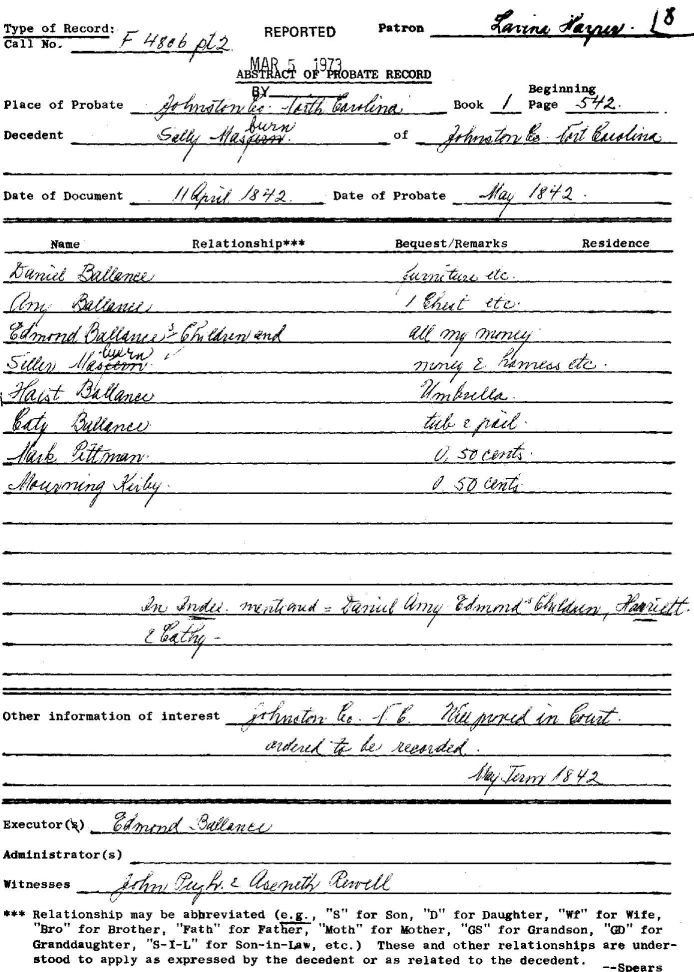 Type of Record: REPORTED Patron Lavina Harper. 8
Call No. F 4806 pt2
MAR 5 1973
ABSTRACT OF PROBATE RECORD
BY Beginning
Place of Probate Johnston Co. North Carolina Book 1 Page 542.
burn
Decedent Sally Mas of Johnston Co. Nort Carolina
Date of Document 11 April 1842. Date of Probate May 1842
Name Relationship*** Bequest/Remarks Residence
Daniel Ballance furniture etc.
Amy Ballance 1 Chest etc.
Edmond Ballance's Children and all my money
burn
Mas money & harness etc.
Ballance Umbrella.
Caty Ballance tub & pail.
Mark Pittman. 0. 50 cents.
Mourning Kirby. 0 50 cents
In Index. mentioned = Daniel Amy Edmond's Children, Harriett.
& Cathy -
Other information of interest Johnston Co. N. C. Will proved in Court.
ordered to be recorded.
May Term 1842
Executor(s) Edmond Ballance
Administrator(s)
Witnesses John Pugh. & Aseneth
*** Relationship may be abbreviated (e.g., "S" for Son, "D" for Daughter, "Wf" for Wife,
"Bro" for Brother, "Fath" for Father, "Moth" for Mother, "GS" for Grandson, "GD" for
Granddaughter, "S-I-L" for Son-in-Law, etc.) These and other relationships are under-
stood to apply as expressed by the decedent or as related to the decedent.
--Spears